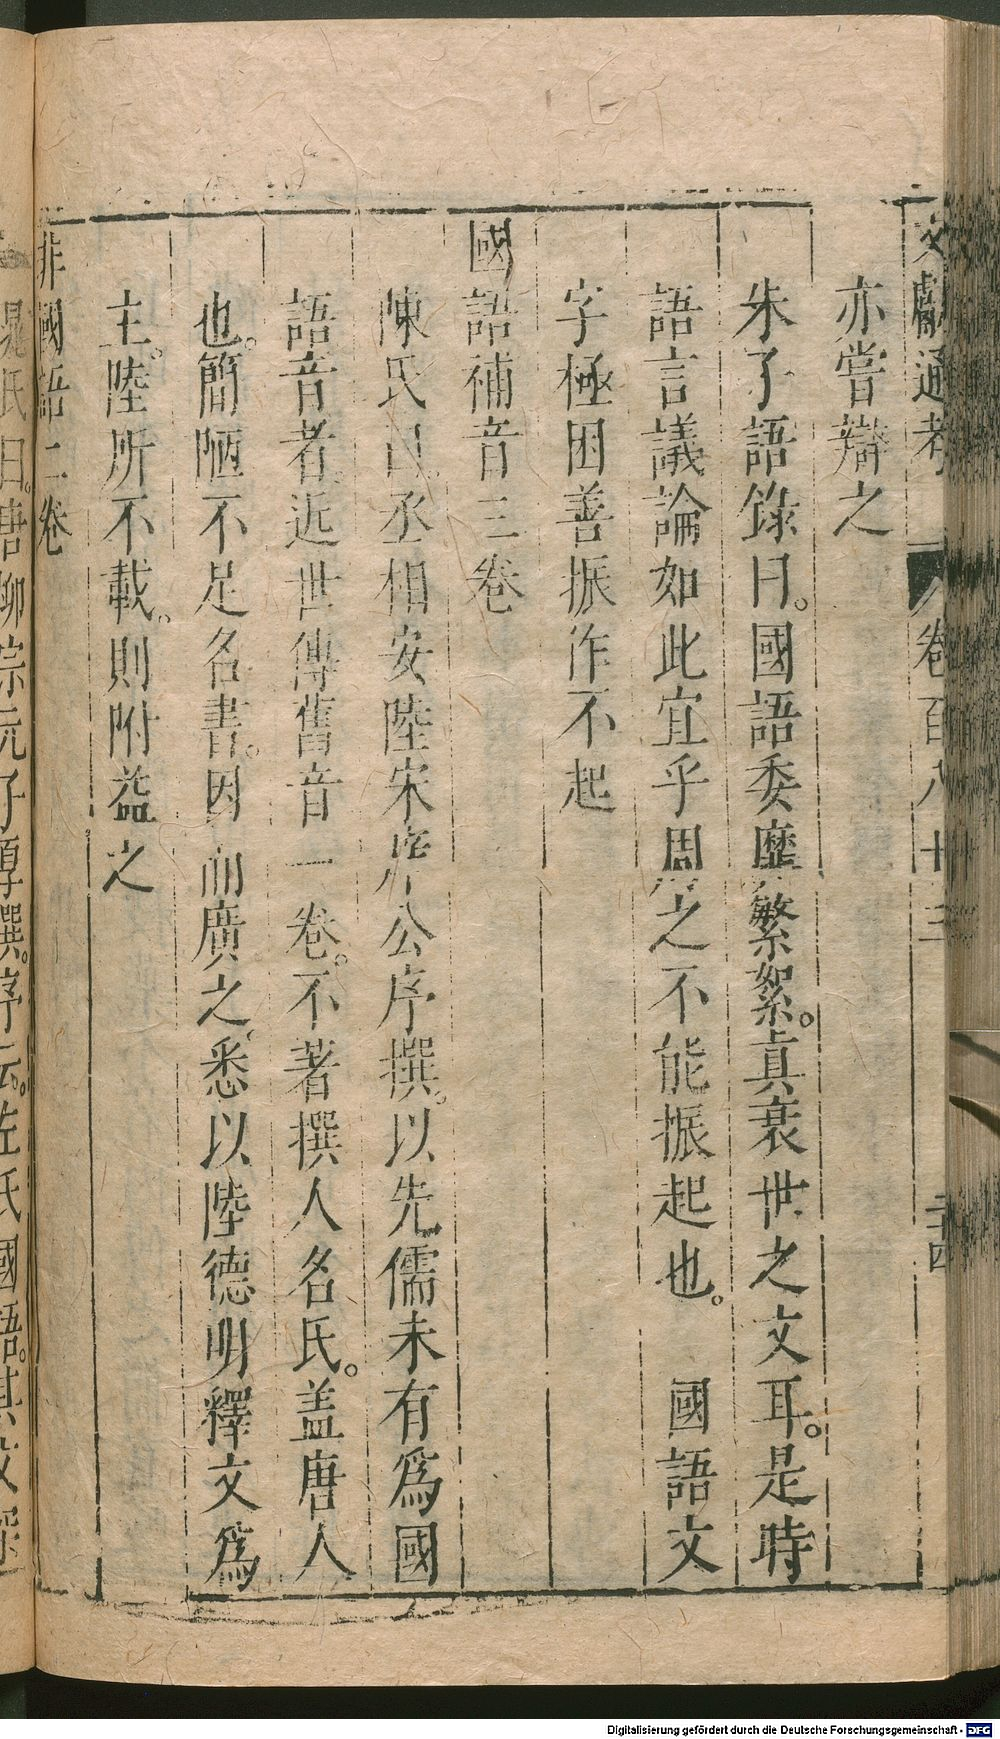 文獻通考 卷百八十三 二十四
亦嘗辯之
朱子語錄曰。國語委靡繁絮。真衰世之文耳。是時
語言議論如此宜乎周之不能振起也。 國語文
字極困善振作不起
國語補音三卷
陳氏曰丞相安陸宋庠公序撰。以先儒未有為國
語音者近世傳舊音一卷。不著撰人名氏。盖唐人
也。簡陋不足名書。因而廣之。悉以陸德明釋文為
主。陸所不載。則附益之
非國語二卷
晁氏曰。唐柳宗元子厚撰。序云。左氏國語。其文深
Digitalisierung gefördert durch die Deutsche Forschungsgemeinschaft - DFG